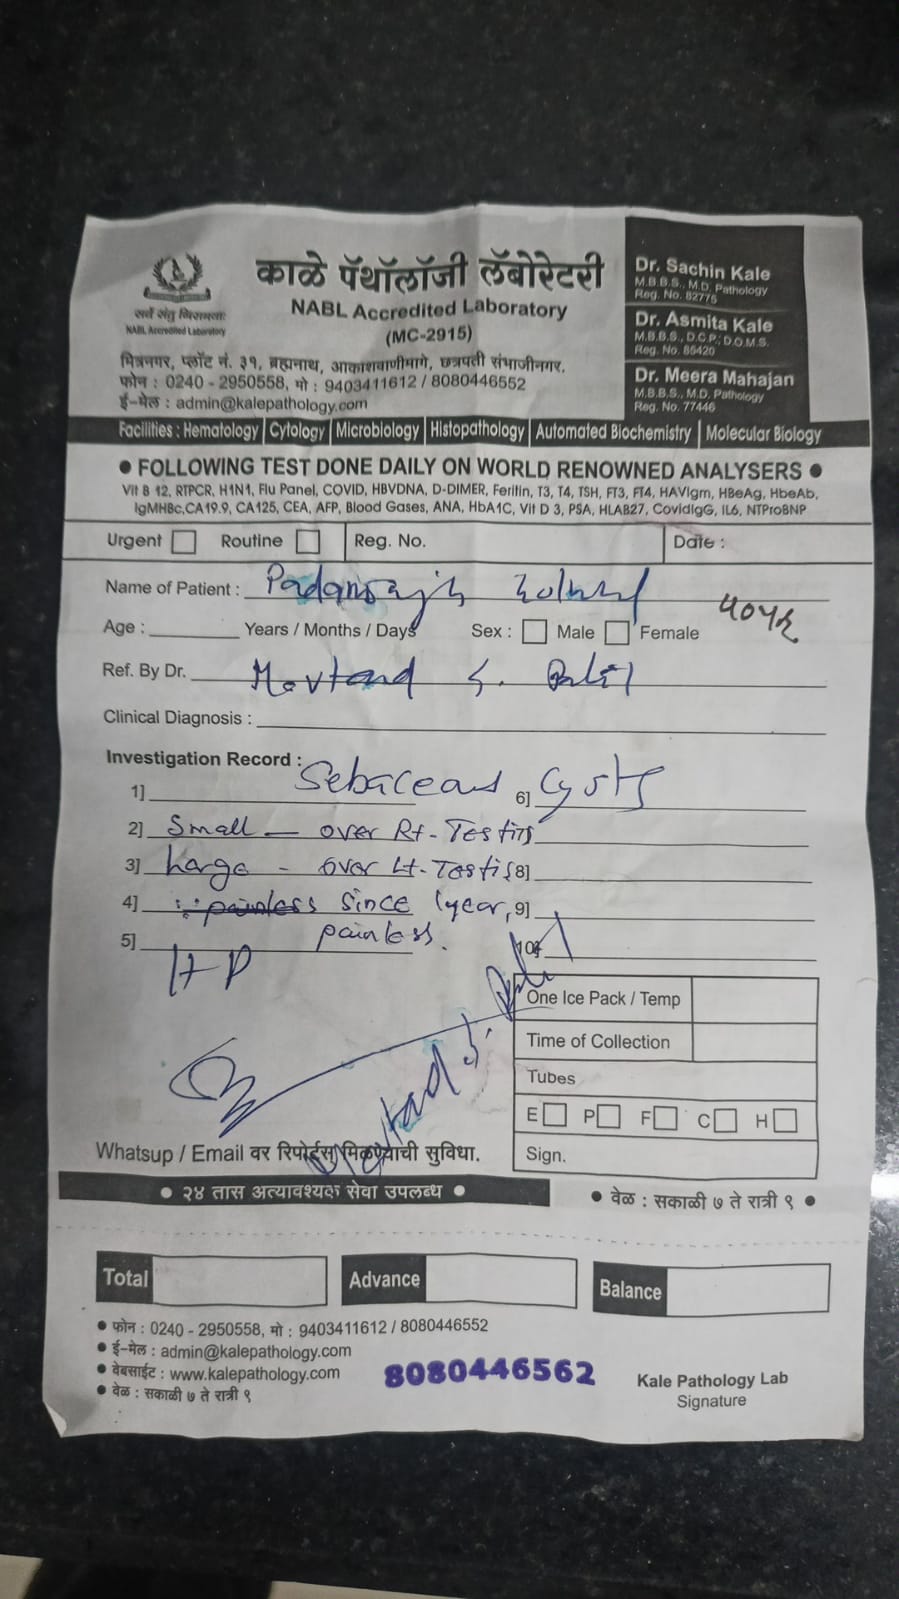 काळे पॅथॉलॉजी लॅबोरेटरी
NABL Accredited Laboratory
(MC-2915)
सर्वे संतु निरामयाः
NABL Accredited Laboratory
मित्रनगर, प्लॉट नं. ३१, ब्रह्मनाथ, आकाशवाणीमागे, छत्रपती संभाजीनगर.
फोन : 0240 - 2950558, मो : 9403411612 / 8080446552
ई-मेल : admin@kalepathology.com
Dr. Sachin Kale
M.B.B.S., M.D. Pathology
Reg. No. 82775
Dr. Asmita Kale
M.B.B.S., D.C.P., D.O.M.S.
Reg. No. 85420
Dr. Meera Mahajan
M.B.B.S., M.D. Pathology
Reg. No. 77446
Facilities : Hematology | Cytology | Microbiology | Histopathology | Automated Biochemistry | Molecular Biology
● FOLLOWING TEST DONE DAILY ON WORLD RENOWNED ANALYSERS ●
Vit B 12, RTPCR, H1N1, Flu Panel, COVID, HBVDNA, D-DIMER, Feritin, T3, T4, TSH, FT3, FT4, HAVIgm, HBeAg, HbeAb,
IgMHBc,CA19.9, CA125, CEA, AFP, Blood Gases, ANA, HbA1C, Vit D 3, PSA, HLAB27, CovidIgG, IL6, NTProBNP
Urgent Routine Reg. No. Date :
Name of Patient :
Age : Years / Months / Days Sex : Male Female
Ref. By Dr. S.
Clinical Diagnosis :
Investigation Record :
1] Sebaceous 6] Cysts
2] Small - over Rt-Testis
3] Large - over Lt-Testis 8]
4] painless since 1 year, 9]
5] painless. 10]
One Ice Pack / Temp
Time of Collection
Tubes
E P F C H
Sign.
Whatsup / Email वर रिपोर्ट्स मिळण्याची सुविधा.
● २४ तास अत्यावश्यक सेवा उपलब्ध ●
● वेळ : सकाळी ७ ते रात्री ९ ●
Total Advance Balance
● फोन : 0240 - 2950558, मो : 9403411612 / 8080446552
● ई-मेल : admin@kalepathology.com
● वेबसाईट : www.kalepathology.com
● वेळ : सकाळी ७ ते रात्री ९
8080446562
Kale Pathology Lab
Signature